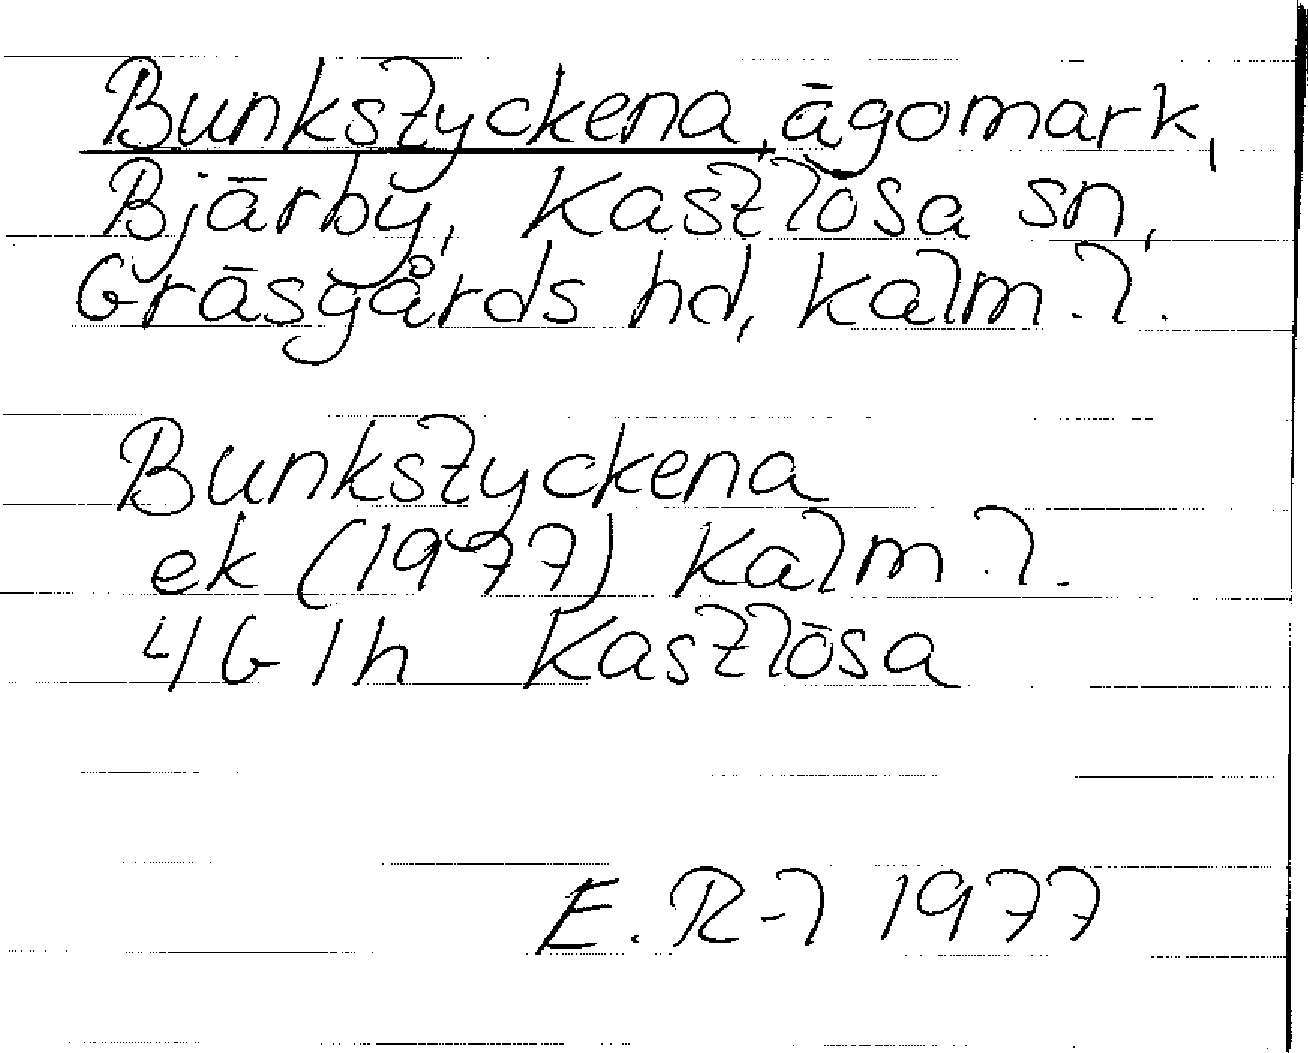 Bunkstyckena, ägomark,
Bjärby, Kastlösa sn,
Gräsgårds hd, Kalm. l.
Bunkstyckena
ek (1977) Kalm. l.
4G 1h Kastlösa
E. R-l 1977